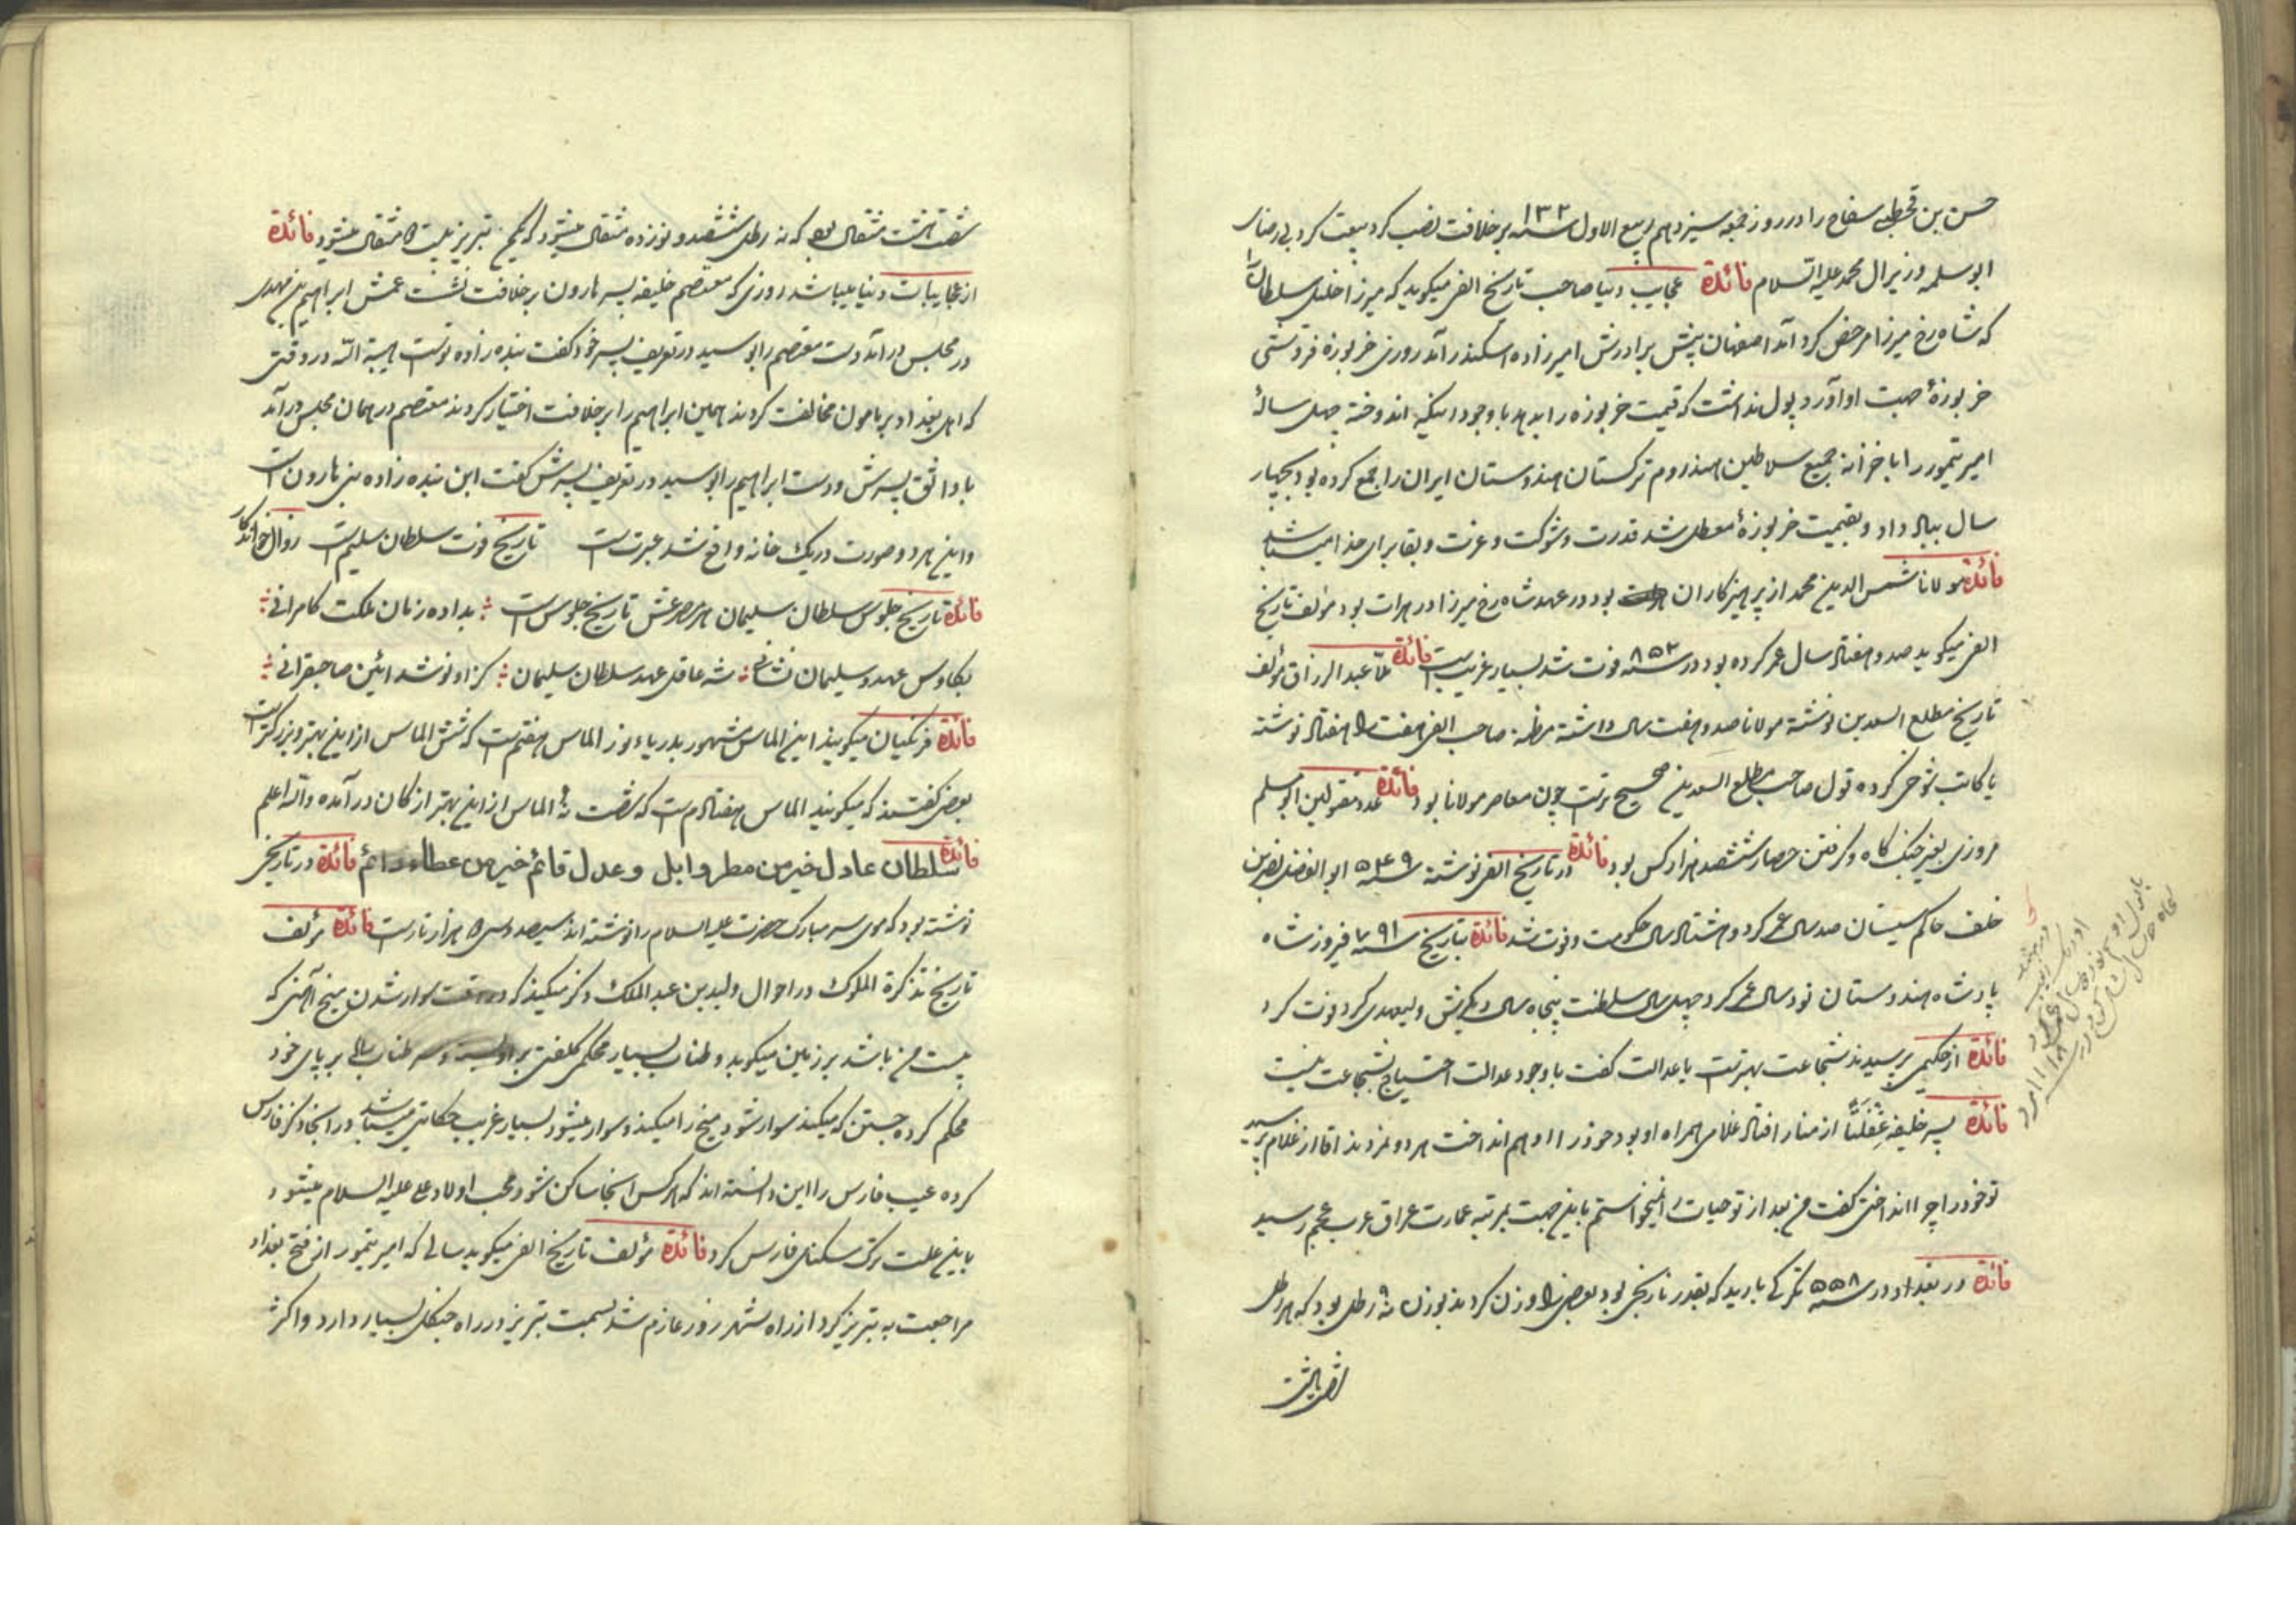 حسن بن قحطبه سفاح را در روز جمعه سیزدهم ربیع الاول سنه ۱۳۲ بر خلافت نصب کرد بیعت کرد بی رضای
ابوسلمه وزیر ال محمد علیه السلام فائدة عجایب دنیا صاحب تاریخ الفی میکوید که میرزا خلیل سلطان را
که شاه رخ میرزا مرخص کرد آمد اصفهان پیش برادرش امیرزاده اسکندر آمد روزی خربوزه فروشی
خربوزهٔ جهت او آورد پول نداشت که قیمت خربوزه را بدهد با وجود اینکه اندوخته چهل سالهٔ
امیر تیمور را با خزانه جمیع سلاطین هند روم ترکستان هندوستان ایران را جمع کرده بود بچهار
سال بباد داد و بقیمت خربوزهٔ معطل شد قدرت و شوکت و عزت و بقا برای خدا میباشد
فائدة مولانا شمس الدین محمد از پرهیزکاران بود در عهد شاه رخ میرزا در هرات بود مؤلف تاریخ
الفی میکوید صد و هفتاد سال عمر کرده بود در سنه ۸۵۳ فوت شد بسیار غریب است فائدة ملا عبد الرزاق مؤلف
تاریخ مطلع السعدین نوشته مولانا صد و هفت سال داشته صاحب الفی هفت را هفتاد نوشته
یا کاتب شوخی کرده قول صاحب مطلع السعدین صحیح تر است چون معاصر مولانا بود فائدة عدد مقتولین ابو مسلم
مروزی بغیر جنک کاه و کرفتن حصار ششصد هزار کس بود فائدة در تاریخ الفی نوشته سنه ۵۴۹ ابو الفضل نصر بن
خلف حاکم سیستان صد سال عمر کرد و هشتاد سال حکومت و فوت شد فائدة بتاریخ سنه ۷۹۱ فیروز شاه
پادشاه هندوستان نود سال عمر کرد چهل سال سلطنت پنجاه سال دیکرش ولیعهدی کرد فوت کرد
فائدة از حکیمی پرسیدند شجاعت بهتر است یا عدالت کفت با وجود عدالت احتیاج بشجاعت نیست
فائدة پسر خلیفه غفلتاً از منار افتاد غلامی همراه او بود خود را او هم انداخت هر دو مردند اقا از غلام پرسید
تو خود را چرا انداختی کفت من بعد از تو حیات را نمیخواستم باین جهت بمرتبه عمارت عراق عرب عجم رسید
فائدة در بغداد در سنه ۵۵۸ تکرکی بارید که بقدر نارنجی بود بعضی را وزن کردند بوزن نه رطل بود که هر رطل
شصت هشت مثقال بود که نه رطل ششصد و نوزده مثقال میشود که تبریز بیست مثقال میشود فائدة
از عجایبات دنیا میباشد روزی که معتصم خلیفه پسر هارون بر خلافت نشست عمش ابراهیم بن مهدی
در مجلس در آمد دست معتصم را بوسید در تعریف پسر خود کفت بنده زاده تو است هبة الله در وقتی
که اهل بغداد بر مامون مخالفت کردند همین ابراهیم را بر خلافت اختیار کردند معتصم در همان مجلس در آمد
با واثق پسرش و دست ابراهیم را بوسید در تعریف پسرش کفت این بنده زاده هارون است
و این هر دو صورت در یک خانه واقع شد عبرت است تاریخ فوت سلطان سلیم است زوال خواندکار
فائدة تاریخ جلوس سلطان سلیمان هر مصرعش تاریخ جلوس است بداده زمان ملکت کامرانی
بکاوس عهد و سلیمان ثانی شه عاقل عهد سلطان سلیمان کزاو نو شد ائین صاحبقرانی
فائدة فرنکیان میکویند این الماس مشهور بدریاء نور الماس هفتم است که شش الماس از این بهتر و بزرکتر است
بعضی کفتند که میکویند الماس هفتادم است که شصت نه الماس از این بهتر از کان در آمده والله اعلم
فائدة سلطان عادل خیر من مطر وابل و عدل قائم خیر من عطاء دائم فائدة در تاریخی
نوشته بود که موی سر مبارک حضرت علیه السلام را نوشته اند سیصد و سی هزار تار است فائدة مؤلف
تاریخ تذکرة الملوک در احوال ولید بن عبد الملک ذکر میکند که در وقت سوار شدن میخ آهنی که
بیست من باشد بر زمین میکوبد و طناب بسیار محکمی کلفتی بر او بسته و سر طناب را بر پای خود
محکم کرده جستن که میکند سوار شود میخ را میکند و سوار میشود بسیار غریب حکایتی میباشد در انجا ذکر فارس
کرده عیب فارس را این دانسته اند که هر کس انجا ساکن شود محب اولاد علی علیه السلام میشود
باین علت ترک سکنای فارس کرد فائدة مؤلف تاریخ الفی میکوید سالی که امیر تیمور از فتح بغداد
مراجعت به تبریز کرد از راه شهر زور عازم شد بسمت تبریز در راه جنکل بسیار دارد و اکثر